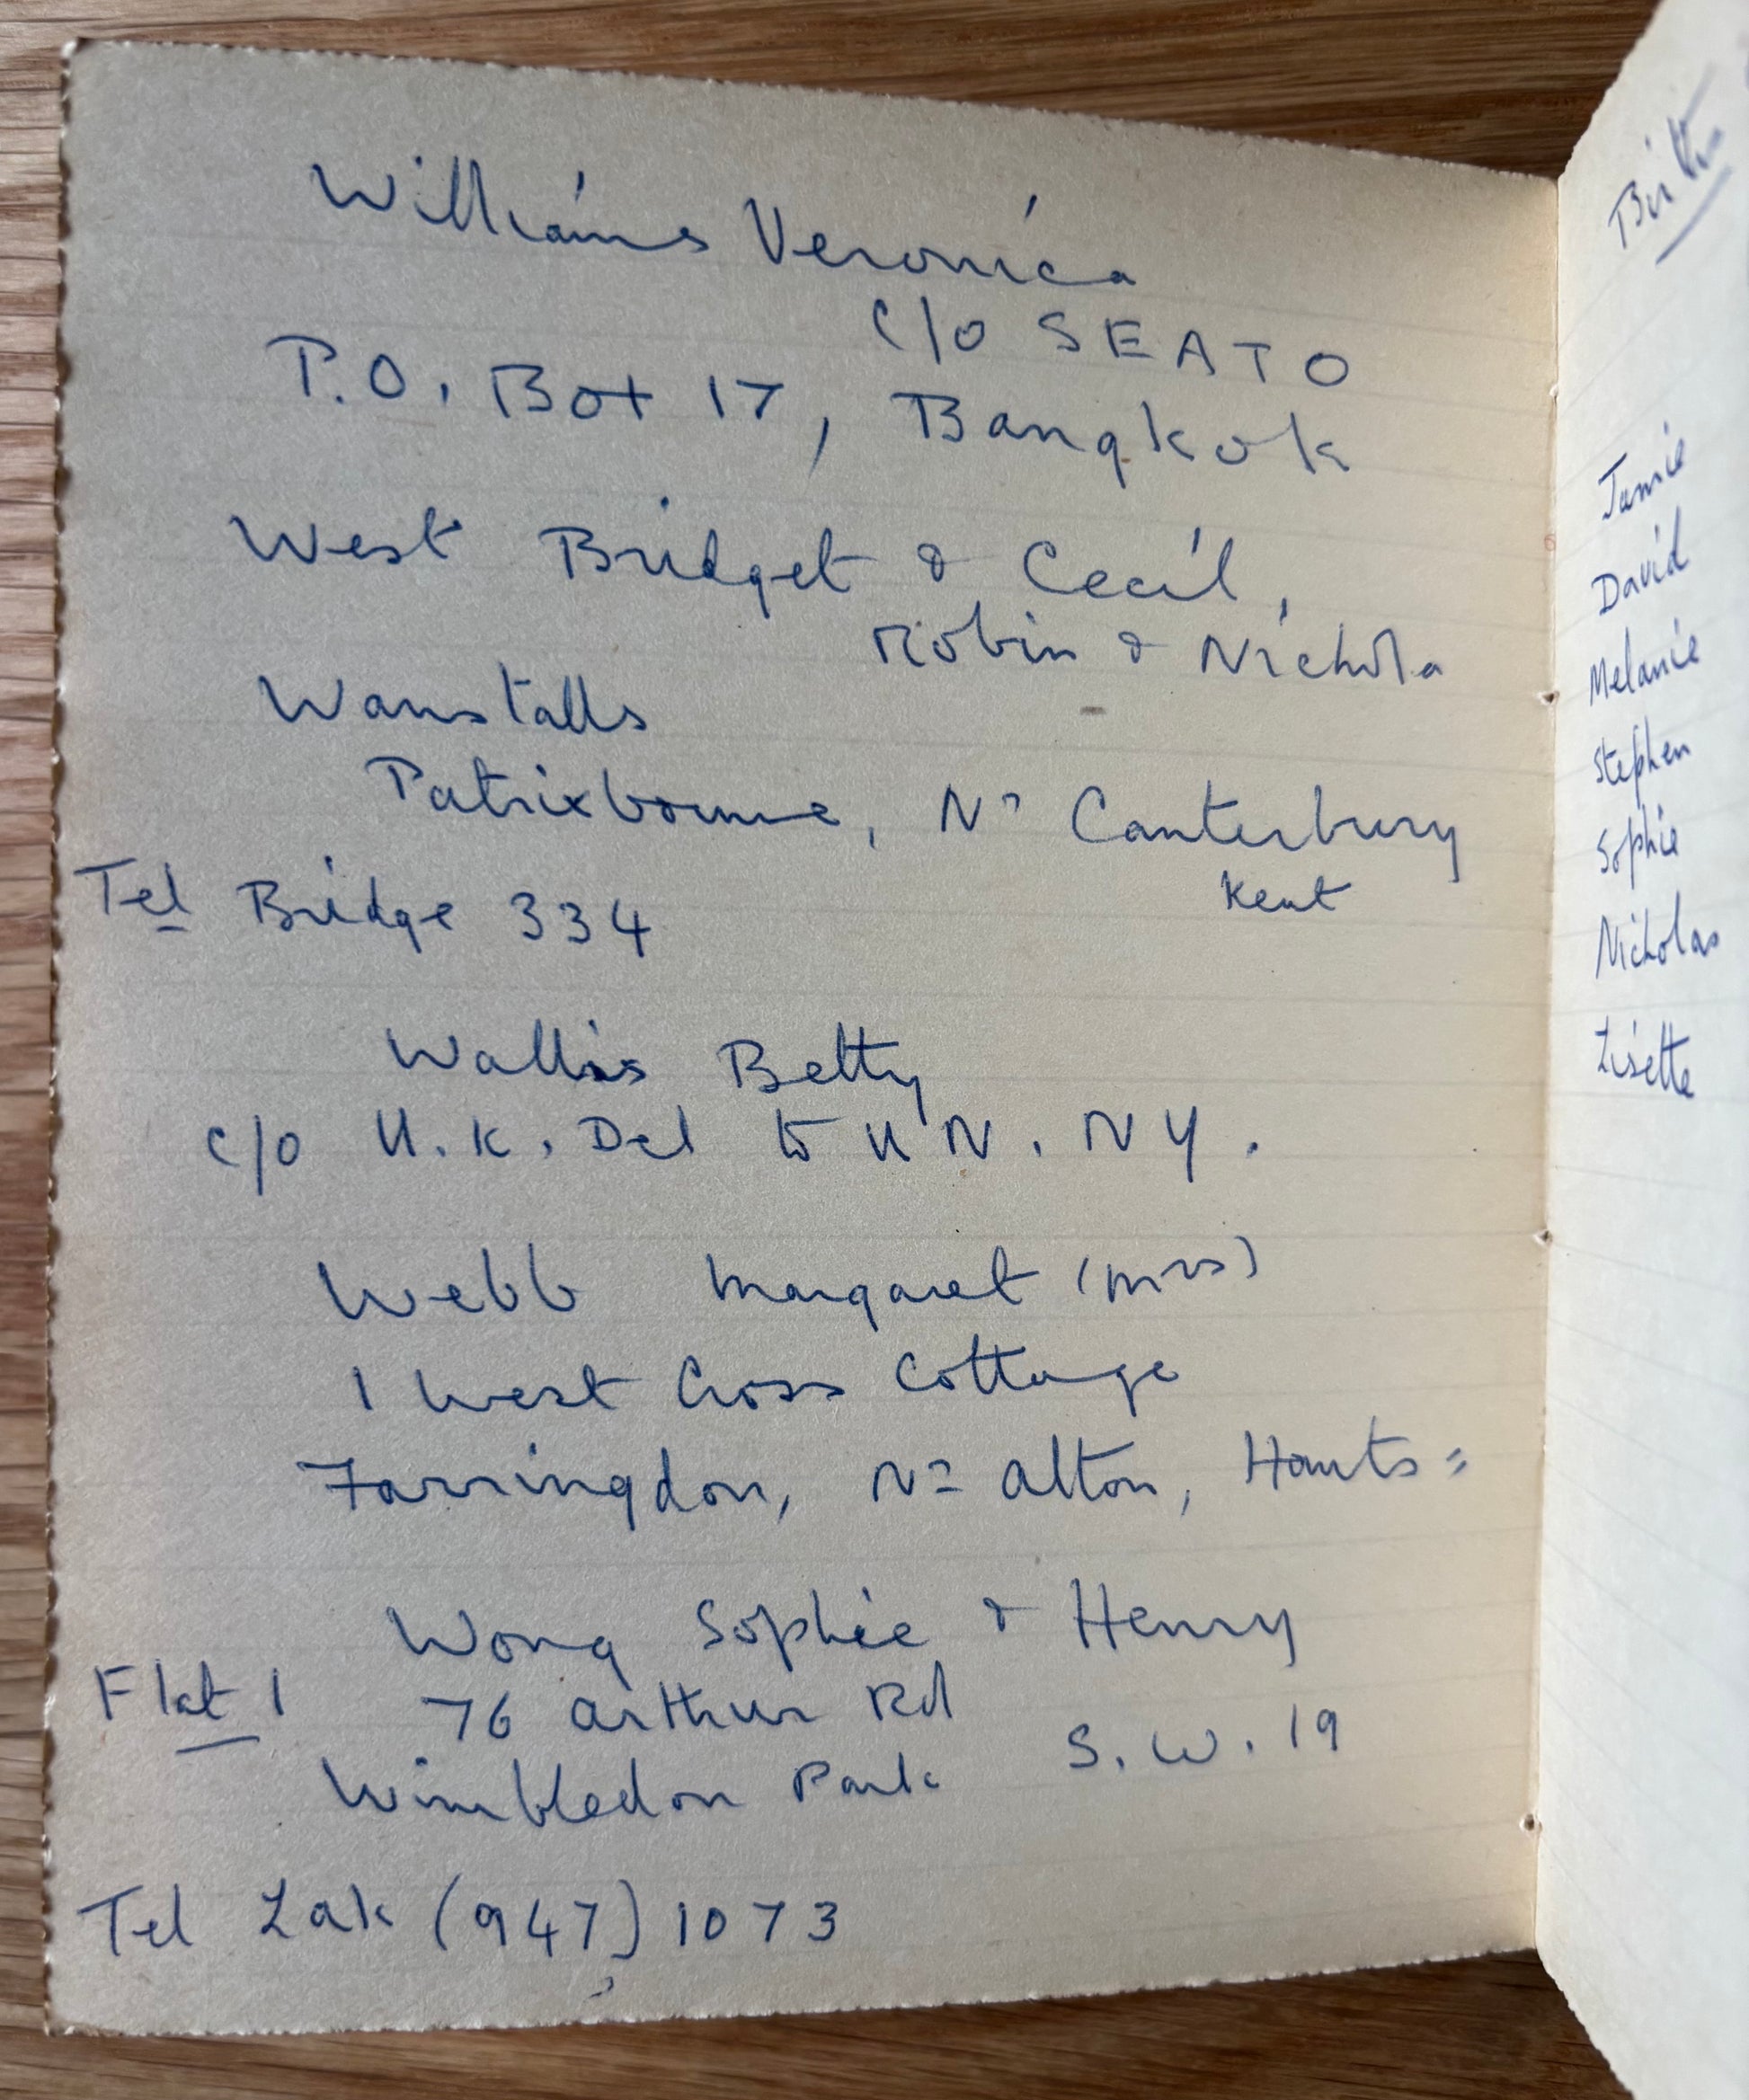 Williams Veronica
c/o SEATO
P.O. Box 17, Bangkok
West Bridget & Cecil,
Robin & Nichola
Wanstalls
Patrixbourne, Nr Canterbury
Kent
Tel Bridge 334
Wallis Betty
c/o U.K. Del to U N. N Y.
Webb Margaret (Mrs)
1 West Cross Cottage
Farringdon, Nr Alton, Hants
Wong Sophie & Henry
Flat 1 76 Arthur Rd
Wimbledon Park S.W.19
Tel Lak (947) 1073
Jamie
David
Melanie
Stephen
Sophie
Nicholas
Lisette